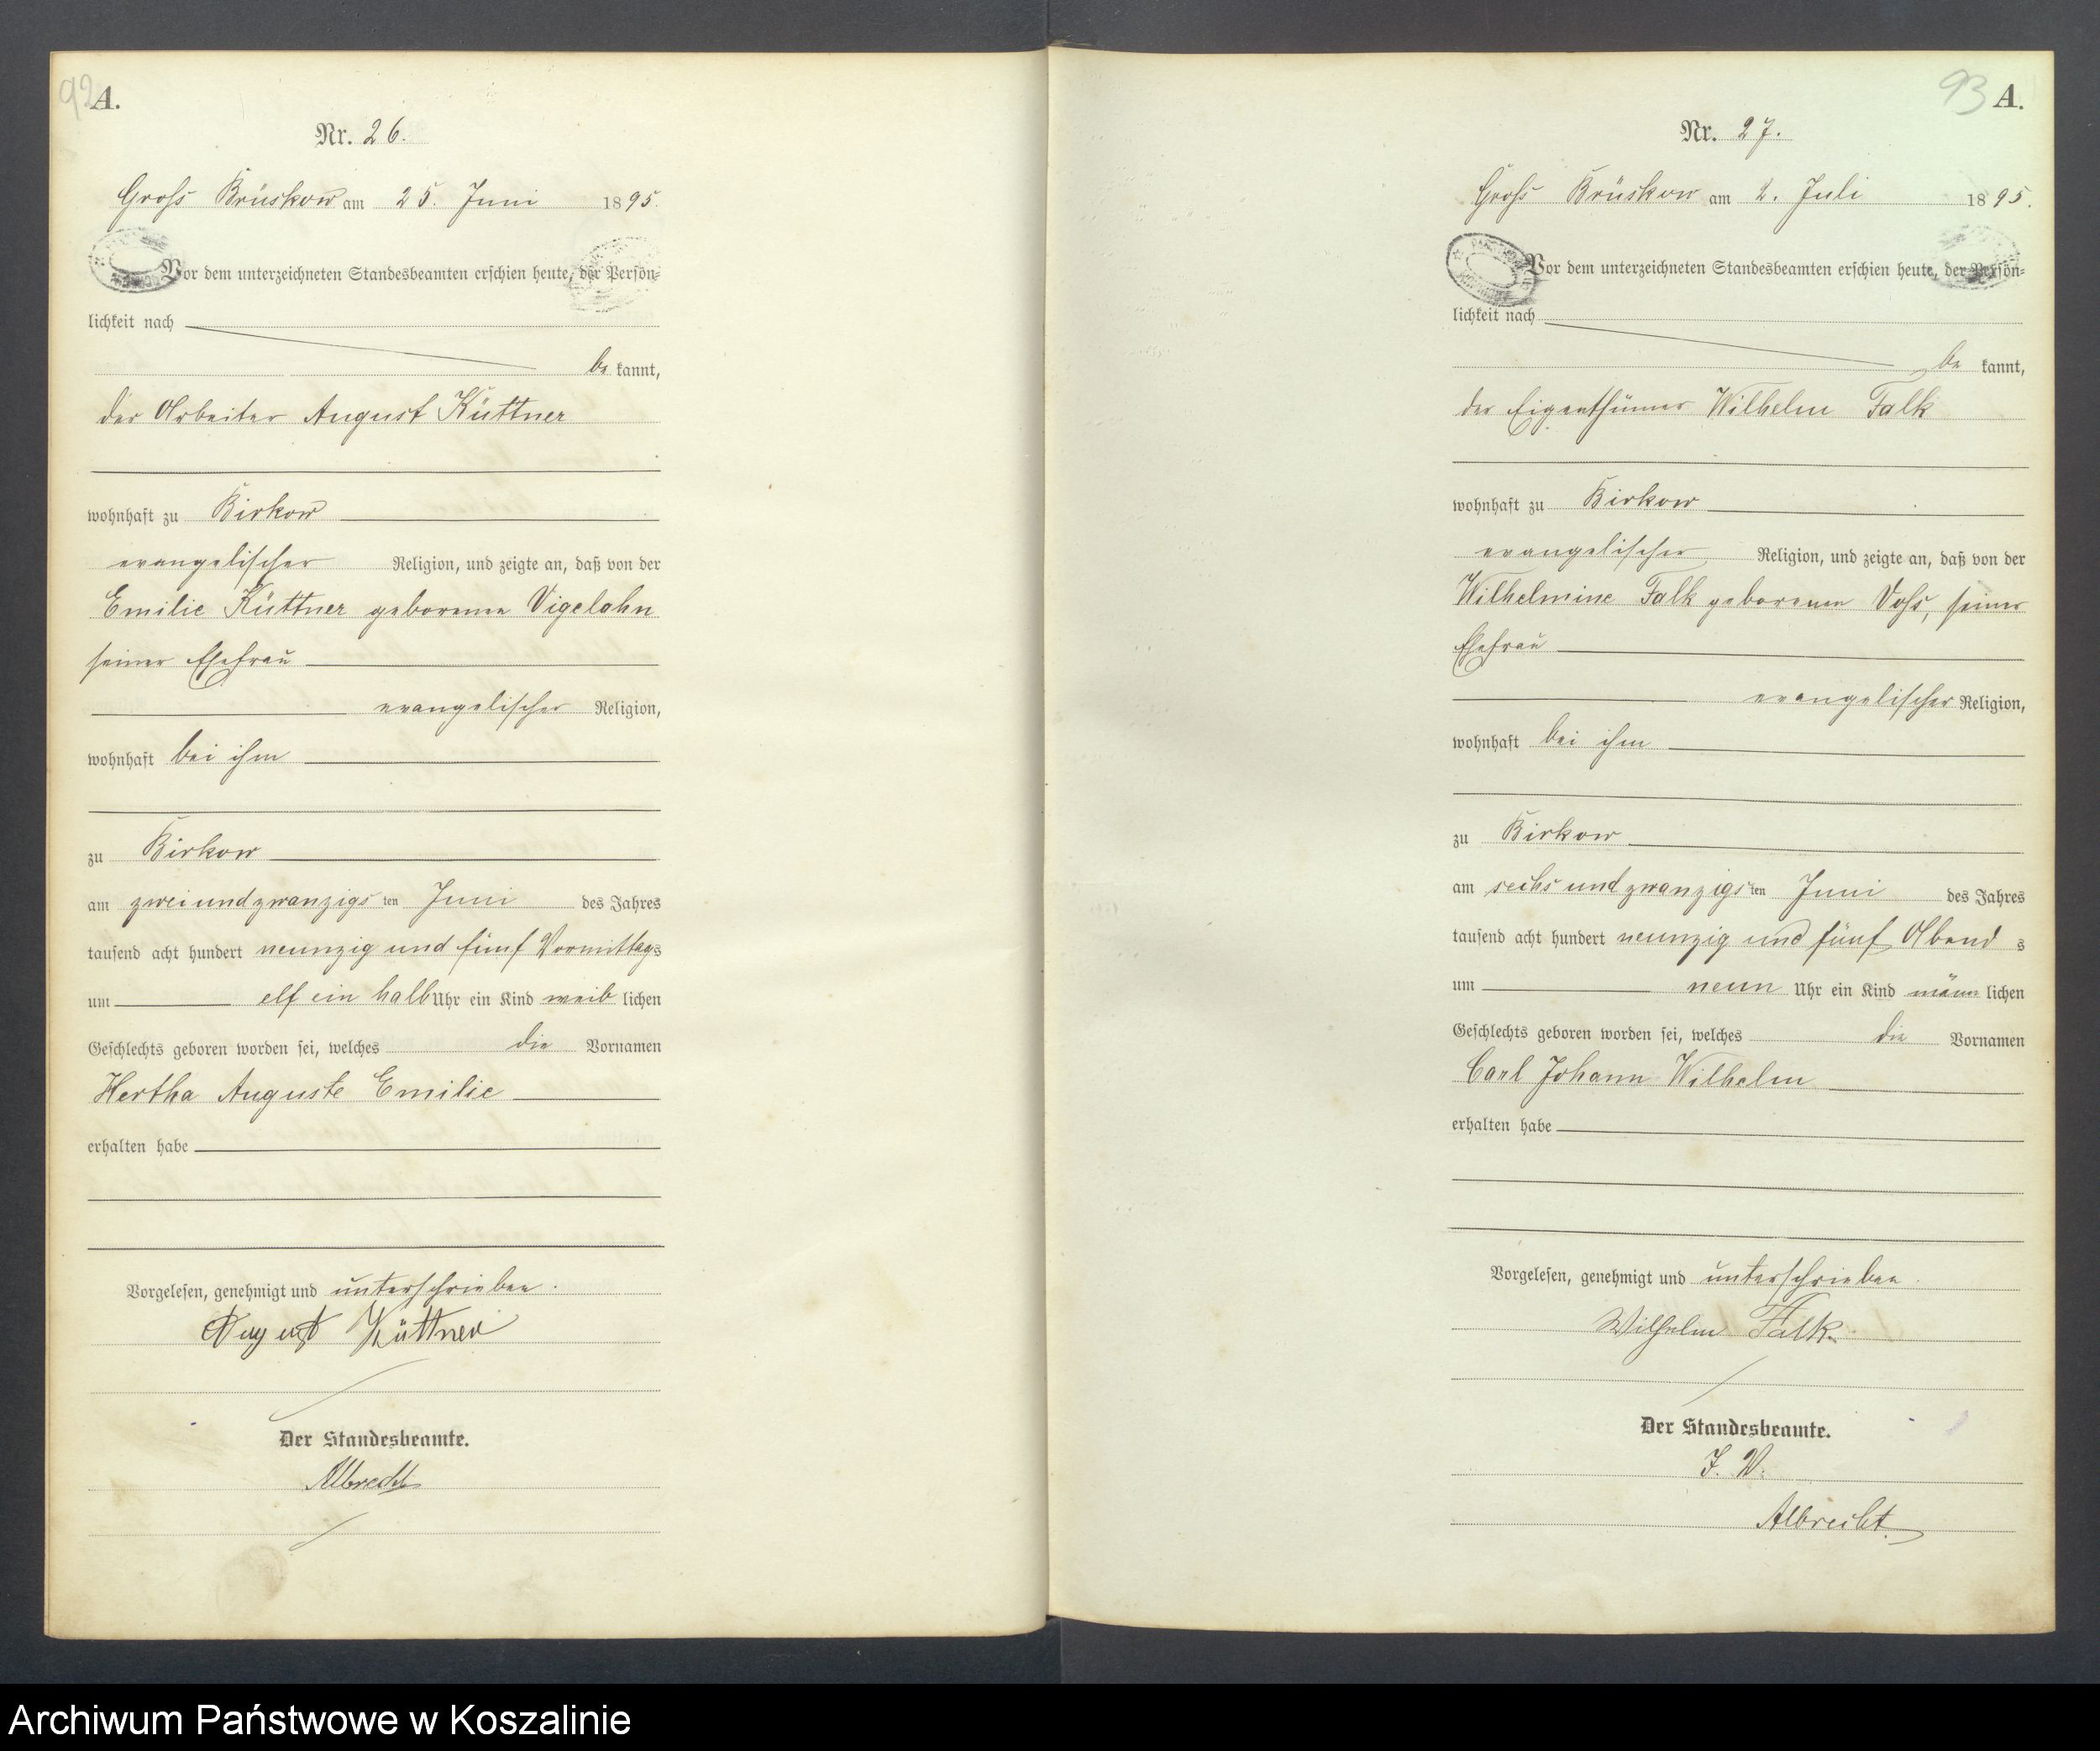 92
A.
Nr. 26.
Gross Brüskow am 25. Juni 1895.
Vor dem unterzeichneten Standesbeamten erschien heute, der Persön-
lichkeit nach
be kannt,
der Arbeiter August Küttner
wohnhaft zu Birkow
evangelischer Religion, und zeigte an, daß von der
Emilie Küttner geborenen Vigelahn
seiner Ehefrau
evangelischer Religion,
wohnhaft bei ihm
zu Birkow
am zweiundzwanzigs ten Juni des Jahres
tausend acht hundert neunzig und fünf Vormittags
um elf ein halb Uhr ein Kind weib lichen
Geschlechts geboren worden sei, welches die Vornamen
Hertha Auguste Emilie
erhalten habe
Vorgelesen, genehmigt und unterschrieben.
August Küttner
Der Standesbeamte.
Albrecht
93
A.
Nr. 27.
Gross Brüskow am 2. Juli 1895.
Vor dem unterzeichneten Standesbeamten erschien heute, der Persön-
lichkeit nach
be kannt,
der Eigenthümer Wilhelm Falk
wohnhaft zu Birkow
evangelischer Religion, und zeigte an, daß von der
Wilhelmine Falk geborenen Voss, seiner
Ehefrau
evangelischer Religion,
wohnhaft bei ihm
zu Birkow
am sechs und zwanzigs ten Juni des Jahres
tausend acht hundert neunzig und fünf Abend s
um neun Uhr ein Kind männ lichen
Geschlechts geboren worden sei, welches die Vornamen
Carl Johann Wilhelm
erhalten habe
Vorgelesen, genehmigt und unterschrieben.
Wilhelm Falk
Der Standesbeamte.
J. V.
Albrecht.
Archiwum Państwowe w Koszalinie